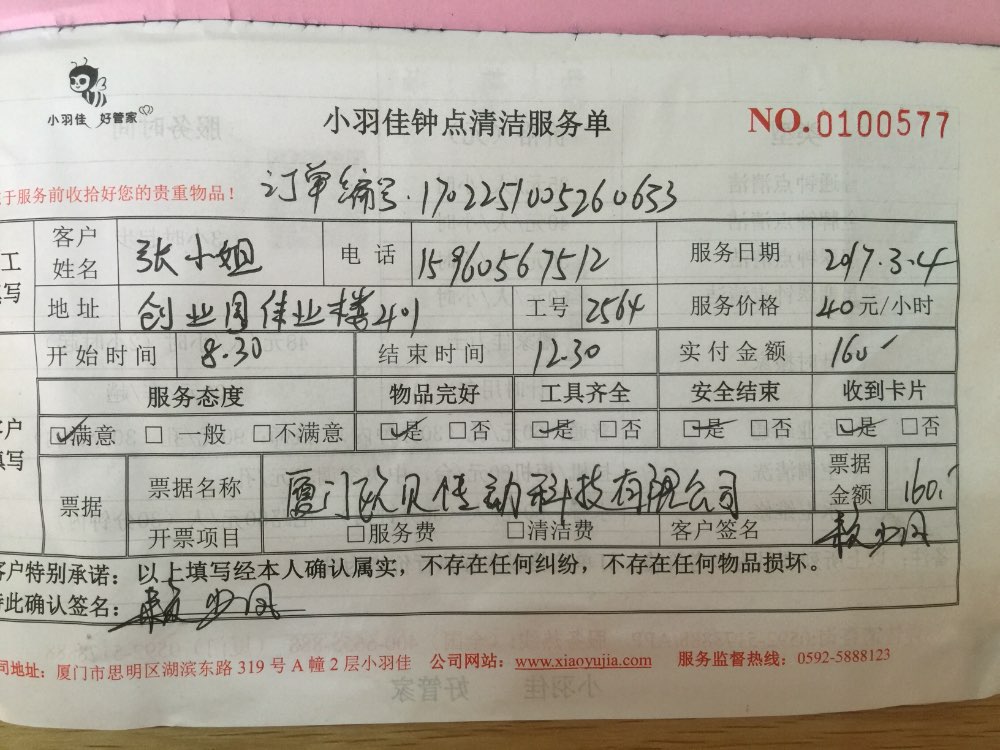 小羽佳 好管家
小羽佳钟点清洁服务单
NO.0100577
于服务前收拾好您的贵重物品！
订单编号.1702251005260633
工
填写
客户姓名 张小姐 电话 15960567512 服务日期 2017.3.4
地址 创业园伟业楼401 工号 2564 服务价格 40元/小时
开始时间 8.30 结束时间 12.30 实付金额 160
服务态度 物品完好 工具齐全 安全结束 收到卡片
客户
填写
☑满意 □一般 □不满意 ☑是 □否 ☑是 □否 ☑是 □否 ☑是 □否
票据 票据名称 厦门欧贝传动科技有限公司 票据金额 160.
开票项目 □服务费 □清洁费 客户签名
客户特别承诺：以上填写经本人确认属实，不存在任何纠纷，不存在任何物品损坏。
特此确认签名：
司地址：厦门市思明区湖滨东路 319 号 A 幢 2 层小羽佳 公司网站：www.xiaoyujia.com 服务监督热线：0592-5888123